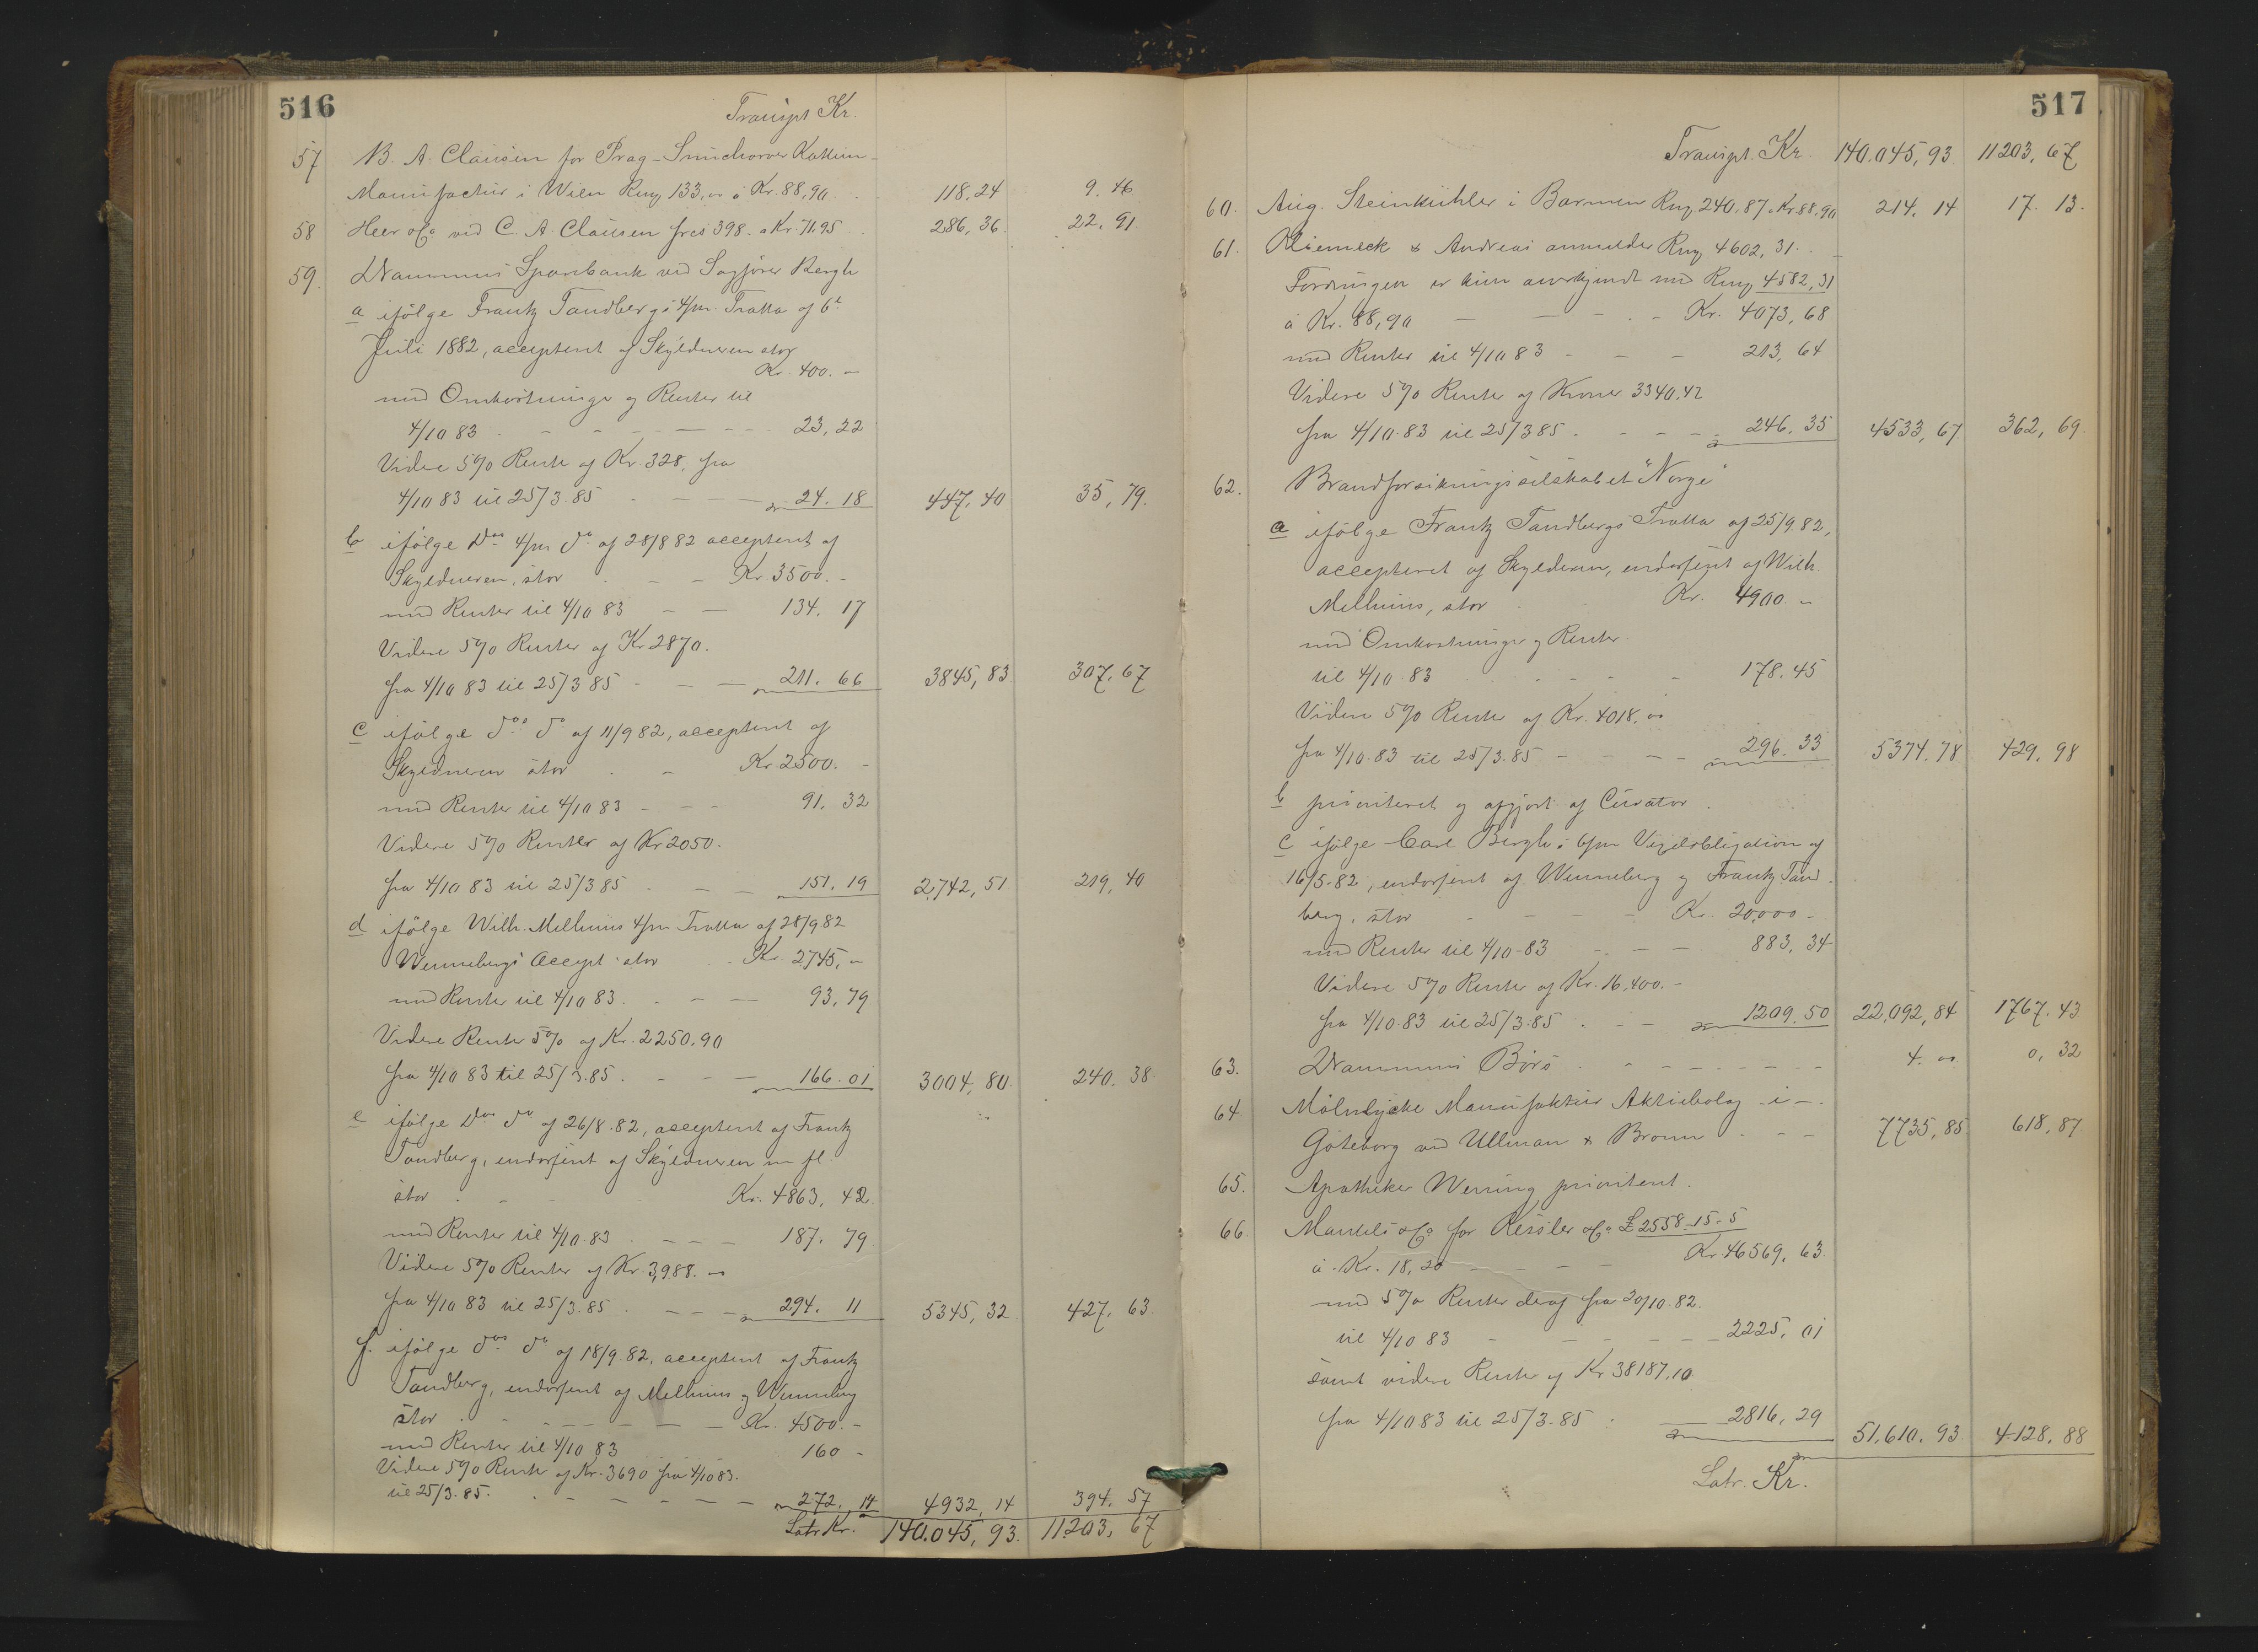 516
Transpt Kr.
57 N. A. Clausen for Prag-Smichower Kattun-
Manufactur i Wien Rmg 133,00 à Kr. 88,90 118,24 9.46
58 Heer & Co ved C. A. Clausen frcs 398. à Kr. 71.95 286,36. 22.91.
59. Drammens Sparebank ved Sagfører Bergh
a ifølge Frantz Tandbergs 4/m. Tratta af 6t
Juli 1882, accepteret af Skyldneren stor
Kr. 400. -
med Omkostninger og Renter til
4/10 83 23,22
Videre 5% Rente af Kr. 328, fra
4/10 83 til 25/3.85 24.18 447.40 35,79.
b ifølge Dos 4/m do af 28/8 82 accepteret af
Skyldneren, stor Kr. 3500. -
med Renter til 4/10 83 134.17
Videre 5% Renter af Kr 2870.
fra 4/10 83 til 25/3 85 211.66 3845,83. 307.67
c ifølge dos do af 11/9 82, accepteret af
Skyldneren stor Kr. 2500. -
med Renter til 4/10 83 91.32
Videre 5% Renter af Kr 2050.
fra 4/10 83 til 25/3 85 151.19 2,742,51. 219,40
d ifølge Wilh. Melhuus 4/m Tratta af 28/9 82
Wennebergs Accept stor Kr. 2,745, -
med Renter til 4/10 83. 93,79
Videre Renter 5% af Kr. 2250.90
fra 4/10 83 til 25/3.85. 166.01 3004,80. 240.38.
e ifølge Dos do af 26/8.82, accepteret af Frantz
Tandberg, endosseret af Skyldneren m fl.
stor Kr. 4863,42.
med Renter til 4/10.83 187.79
Videre 5% Renter af Kr. 3,988. -
fra 4/10 83 til 25/3.85 294.11 5345,32 427.63.
f. ifølge dos do af 18/9.82, accepteret af Frantz
Tandberg, endosseret af Melhuus og Wenneberg
stor Kr. 4500. -
med Renter til 4/10 83 160 -
Videre 5% Rente af Kr. 3690 fra 4/10 83.
til 25/3.85. 272.14 4932,14 394.57
Latr Kr. 140.045,93. 11203,67
517
Transpt. Kr. 140.045,93 11203,67
60. Aug. Steinkühler i Barmen Rmg. 240.87 à Kr. 88,90 214.14 17.13.
61. Kliemeck & Andreas anmelder Rmg 4602,31.
Fordringen er kun anerkjendt med Rmg 4582,31
à Kr. 88,90 Kr. 4073,68
med Renter til 4/10 83 213,64
Videre 5% Rente af Kroner 3340.42
fra 4/10.83 til 25/3 85. 246.35 4533,67 362,69.
62. Brandforsikringsselskabet "Norge"
a ifølge Frantz Tandbergs Tratta af 25/9.82,
accepteret af Skylderen, endosseret af Wilh.
Melhuus, stor Kr. 4900. -
med Omkostninger og Renter
til 4/10.83 178.45
Videre 5% Rente af Kr. 4018,00
fra 4/10.83 til 25/3.85 296.33 5374.78 429,98
b prioriteret og afgjort af Curator.
c ifølge Carl Berghs 6/m Vexelobligation af
16/5.82, endosseret af Wenneberg og Frantz Tand-
berg, stor Kr. 20,000 -
med Renter til 4/10-83 883,34
Videre 5% Renter af Kr. 16,400. -
fra 4/10.83 til 25/3.85 1209.50 22,092,84 1767.43
63. Drammens Börs 4.00 0,32
64. Mölnlycke Manufaktur Aktiebolag - i -
Göteborg ved Ullman & Broun 7735,85 618,87.
65. Apotheker Werring prioriteret.
66. Mantels & Co for Kessler & Co £ 2558-15-5
à Kr. 18,20 Kr. 46569,63.
med 5% Renter deraf fra 20/10.82.
til 4/10 83 2225,01
samt videre Renter af Kr 38187.10
fra 4/10 83 til 25/3-85 2816,29 51,610.93 4128,88
Latr. Kr.